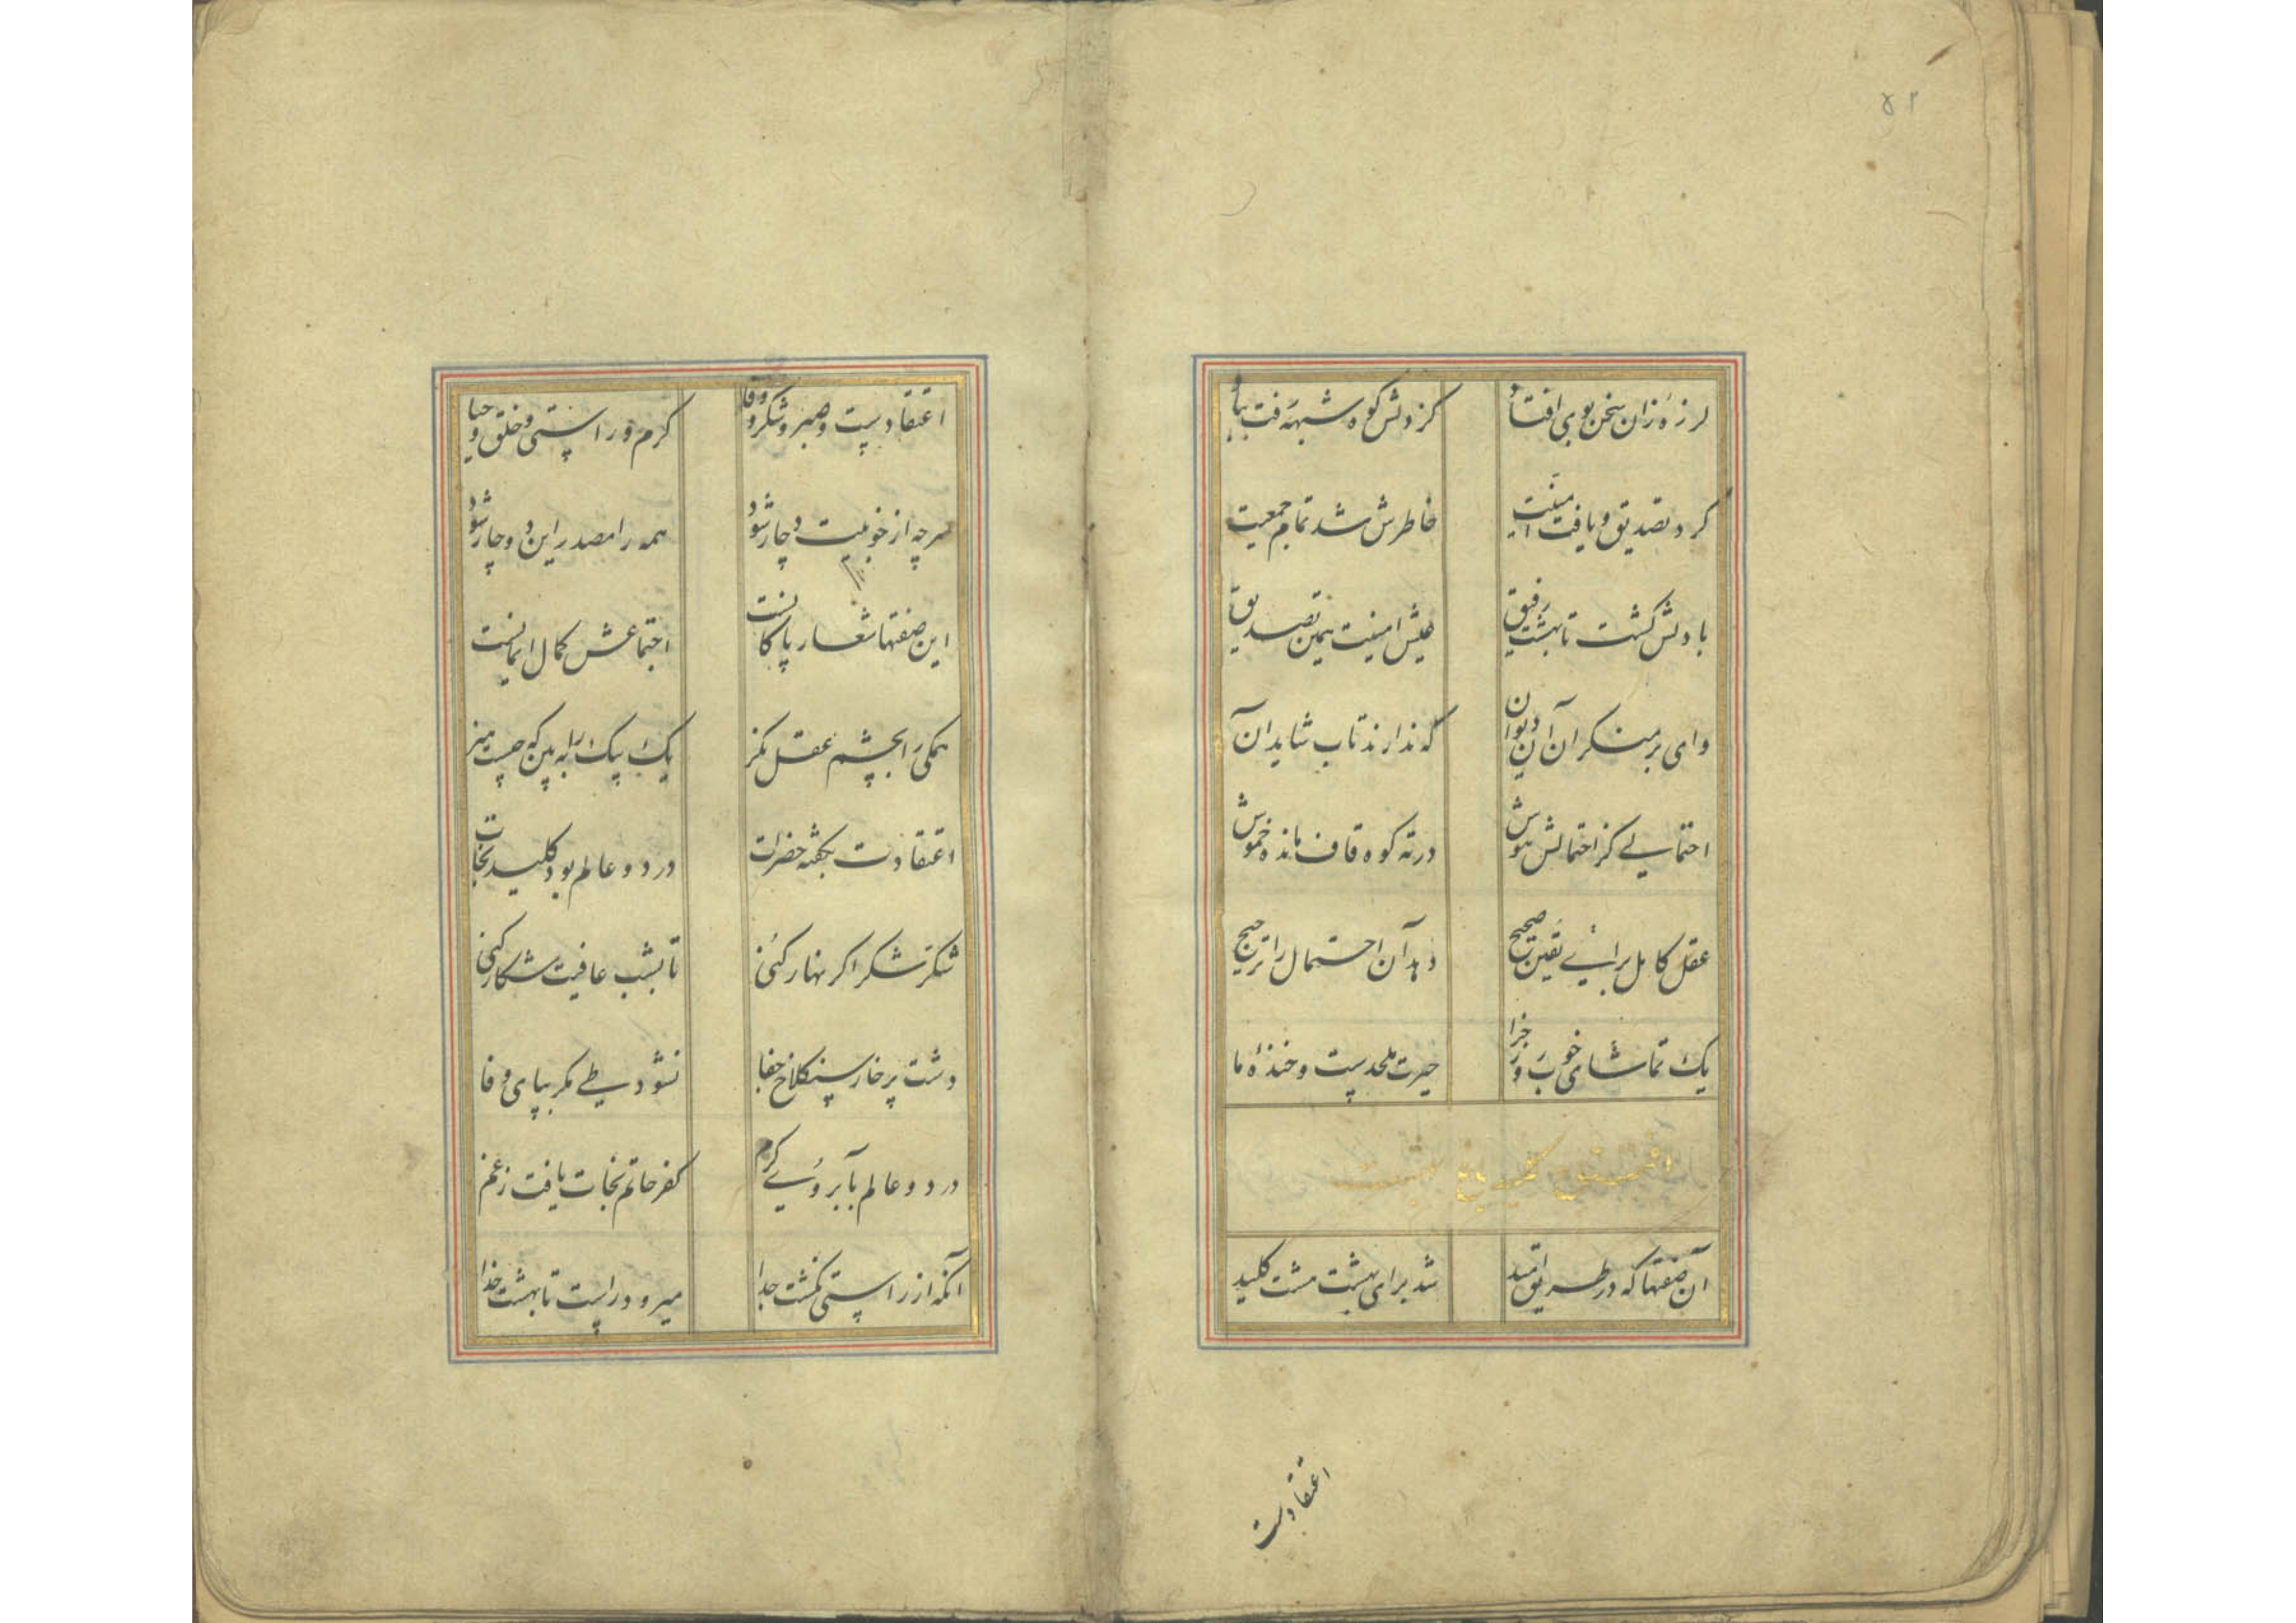 ۵۲
لرزه زان سخن بوی افتاد کز دلش کوه شبهه رفت بباد
کرد تصدیق و یافت امنیت خاطرش شد تمام جمعیت
با دلش گشت تا بهشت رفیق عیش امنیت یمن تصدیق
وای بر منکران آن دیوان که ندارند تاب شاید آن
احتمالی کز احتمالش هوش در ته کوه قاف مانده خموش
عقل کامل برای یقین صحیح دهد آن احتمال را ترجیح
یک تماشای خوب روز جزا حیرت ملحدیست و خنده ما
آن صفتها که در طریق امید شد برای بهشت مشت کلید
اعتقادست
اعتقادیست و صبر و شکر و وفا کرم و راستی و خلق و حیا
هرچه از خوبیت دچار شود همه را مصدر این دو چار شود
این صفتها شعار پاکانست اجتماعش کمال ایمانست
همگی را بچشم عقل نگر یک بیک را به بین که چیست هنر
اعتقادست بگفته حضرات در دو عالم بود کلید نجات
شکر شکر اگر نهار کنی تا بشب عافیت شکار کنی
دشت پر خار سنکلاخ جفا نشود طی مگر بپای وفا
در دو عالم بآبروی کرم کفر حاتم نجات یافت ز غم
آنکه از راستی نگشت جدا میرود راست تا بهشت خدا